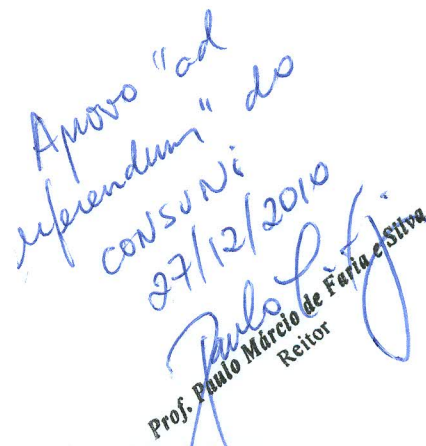 Aprovo "ad
referendum" do
CONSUNI
27/12/2010
Prof. Paulo Márcio de Faria e Silva
Reitor